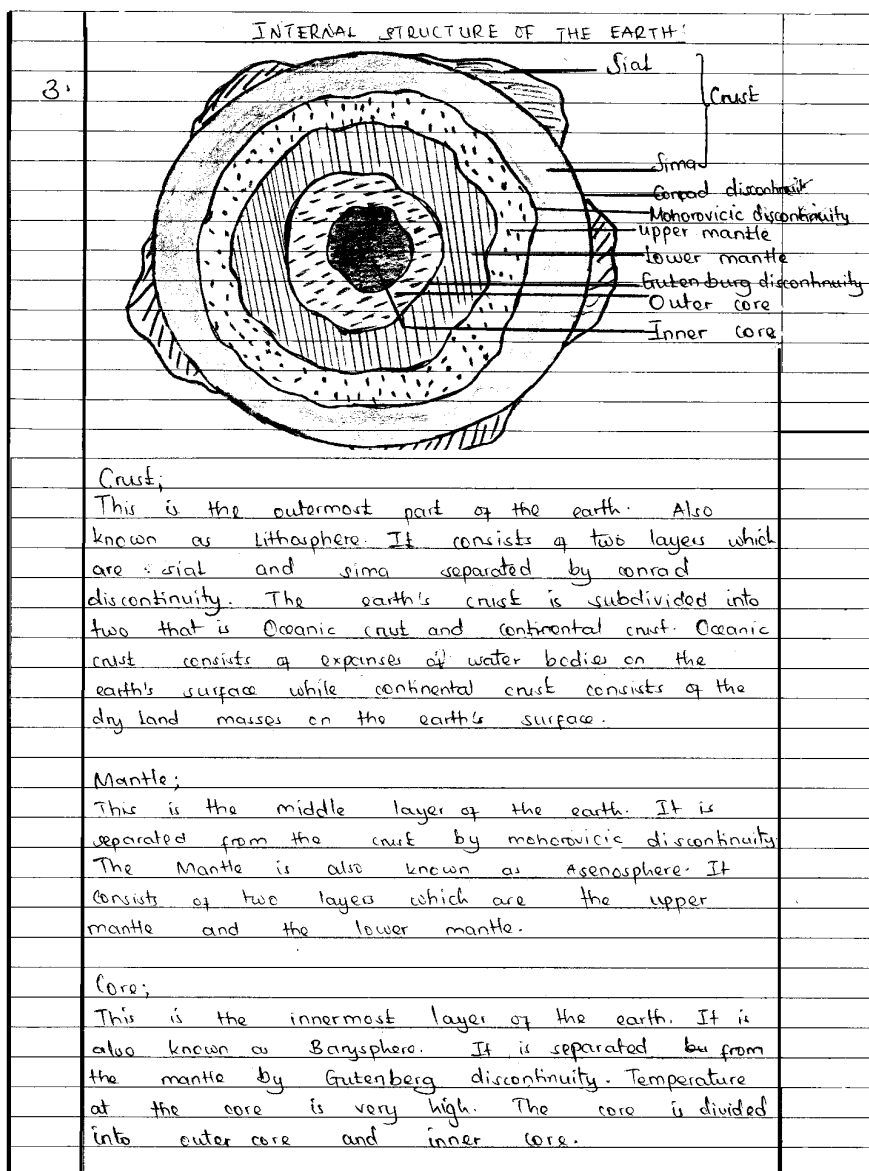 INTERNAL STRUCTURE OF THE EARTH:
3.
Sial
Crust
Sima
Conrad discontinuit
Mohorovicic discontinuity
upper mantle
Lower mantle
Gutenburg discontnuity
Outer core
Inner core
Crust;
This is the outermost part of the earth. Also
known as Lithosphere. It consists of two layers which
are : sial and sima separated by conrad
discontinuity. The earth's crust is subdivided into
two that is Oceanic crust and continental crust. Oceanic
crust consists of expanses of water bodies on the
earth's surface while continental crust consists of the
dry land masses on the earth's surface.
Mantle;
This is the middle layer of the earth. It is
separated from the crust by mohorovicic discontinuity.
The Mantle is also known as Asenosphere. It
consists of two layers which are the upper
mantle and the lower mantle.
Core;
This is the innermost layer of the earth. It is
also known as Barysphere. It is separated from
the mantle by Gutenberg discontinuity. Temperature
at the core is very high. The core is divided
into outer core and inner core.